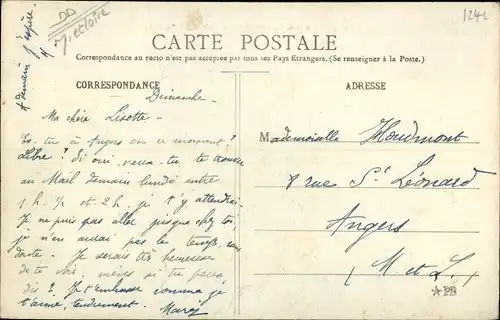 DD
M. et Loire
1242
à demain j'espère
CARTE POSTALE
Correspondance au recto n'est pas acceptée par tous les Pays Etrangers. (Se renseigner à la Poste.)
CORRESPONDANCE
ADRESSE
Dimanche -
Ma chère Lisotte -
Es-tu à Angers en ce moment?
Libre? Si oui, veux-tu te trouver
au Mail demain lundi entre
1h. ½ et 2h. je t'y attendrai.
Je ne puis pas aller jusque chez toi,
je n'en aurai pas le temps, sans
doute. Je serais très heureuse
de te voir, mais si tu peux
dis? Je t'embrasse comme je
t'aime, tendrement.
Mademoiselle Houdmont
8 rue St Léonard
Angers
(M. et L.)
PB